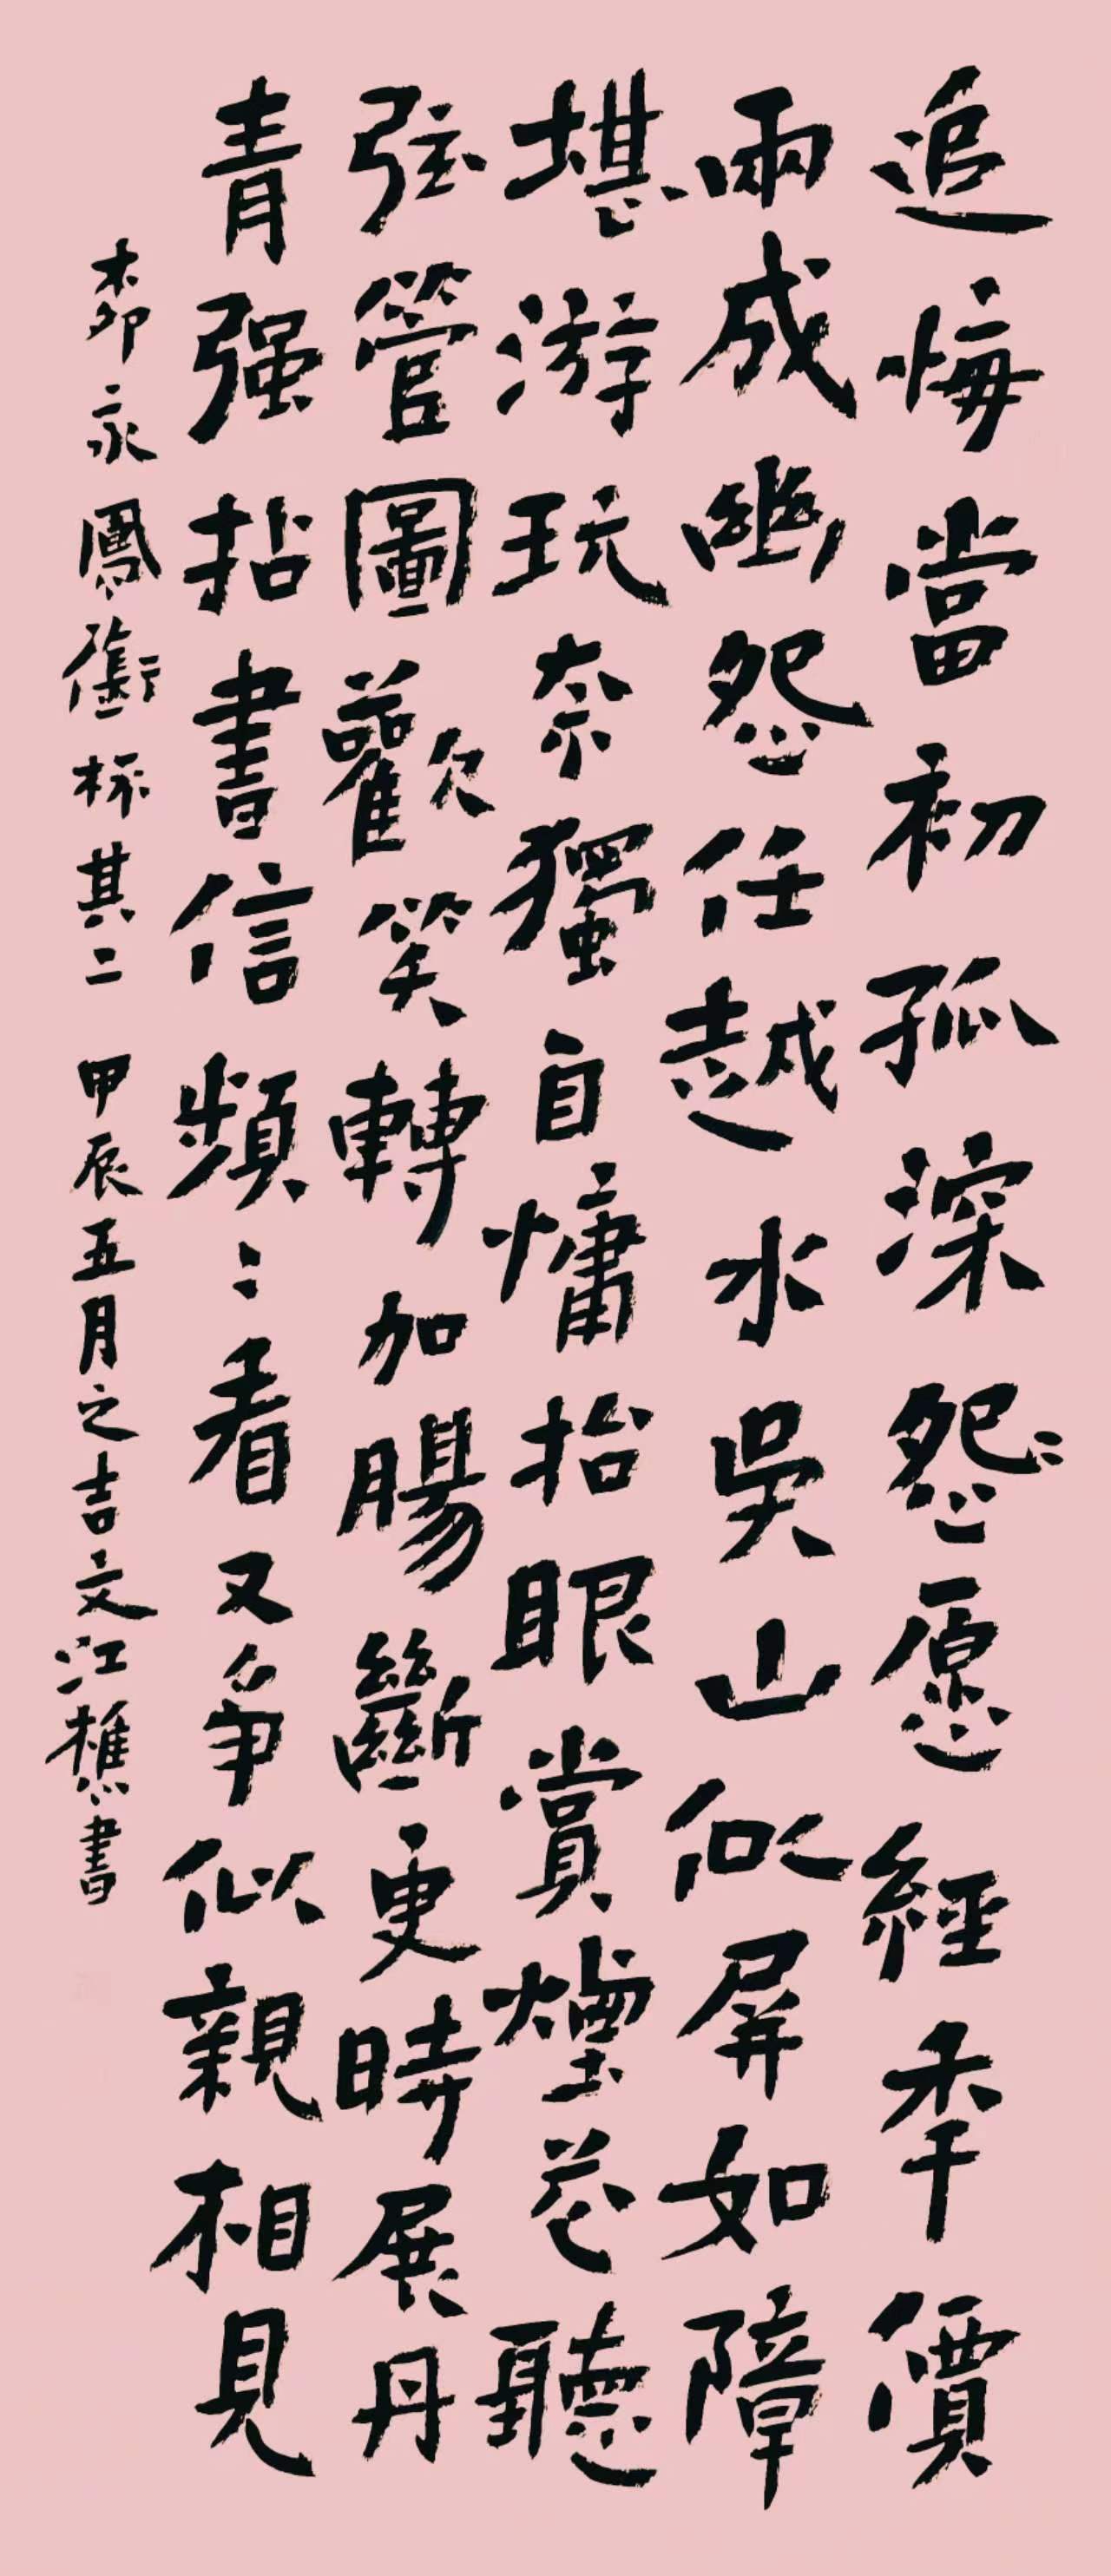 追悔當初孤深怨⺀愿經秊價
兩成幽怨任越水吳山似屏如障
堪游玩奈獨自慵抬眼賞煙花聽
弦管圖歡笑轉加腸斷更時展丹
青强拈書信頻〻看又爭似親相見
柳永鳳銜杯其二 甲辰五月之吉文江樵書